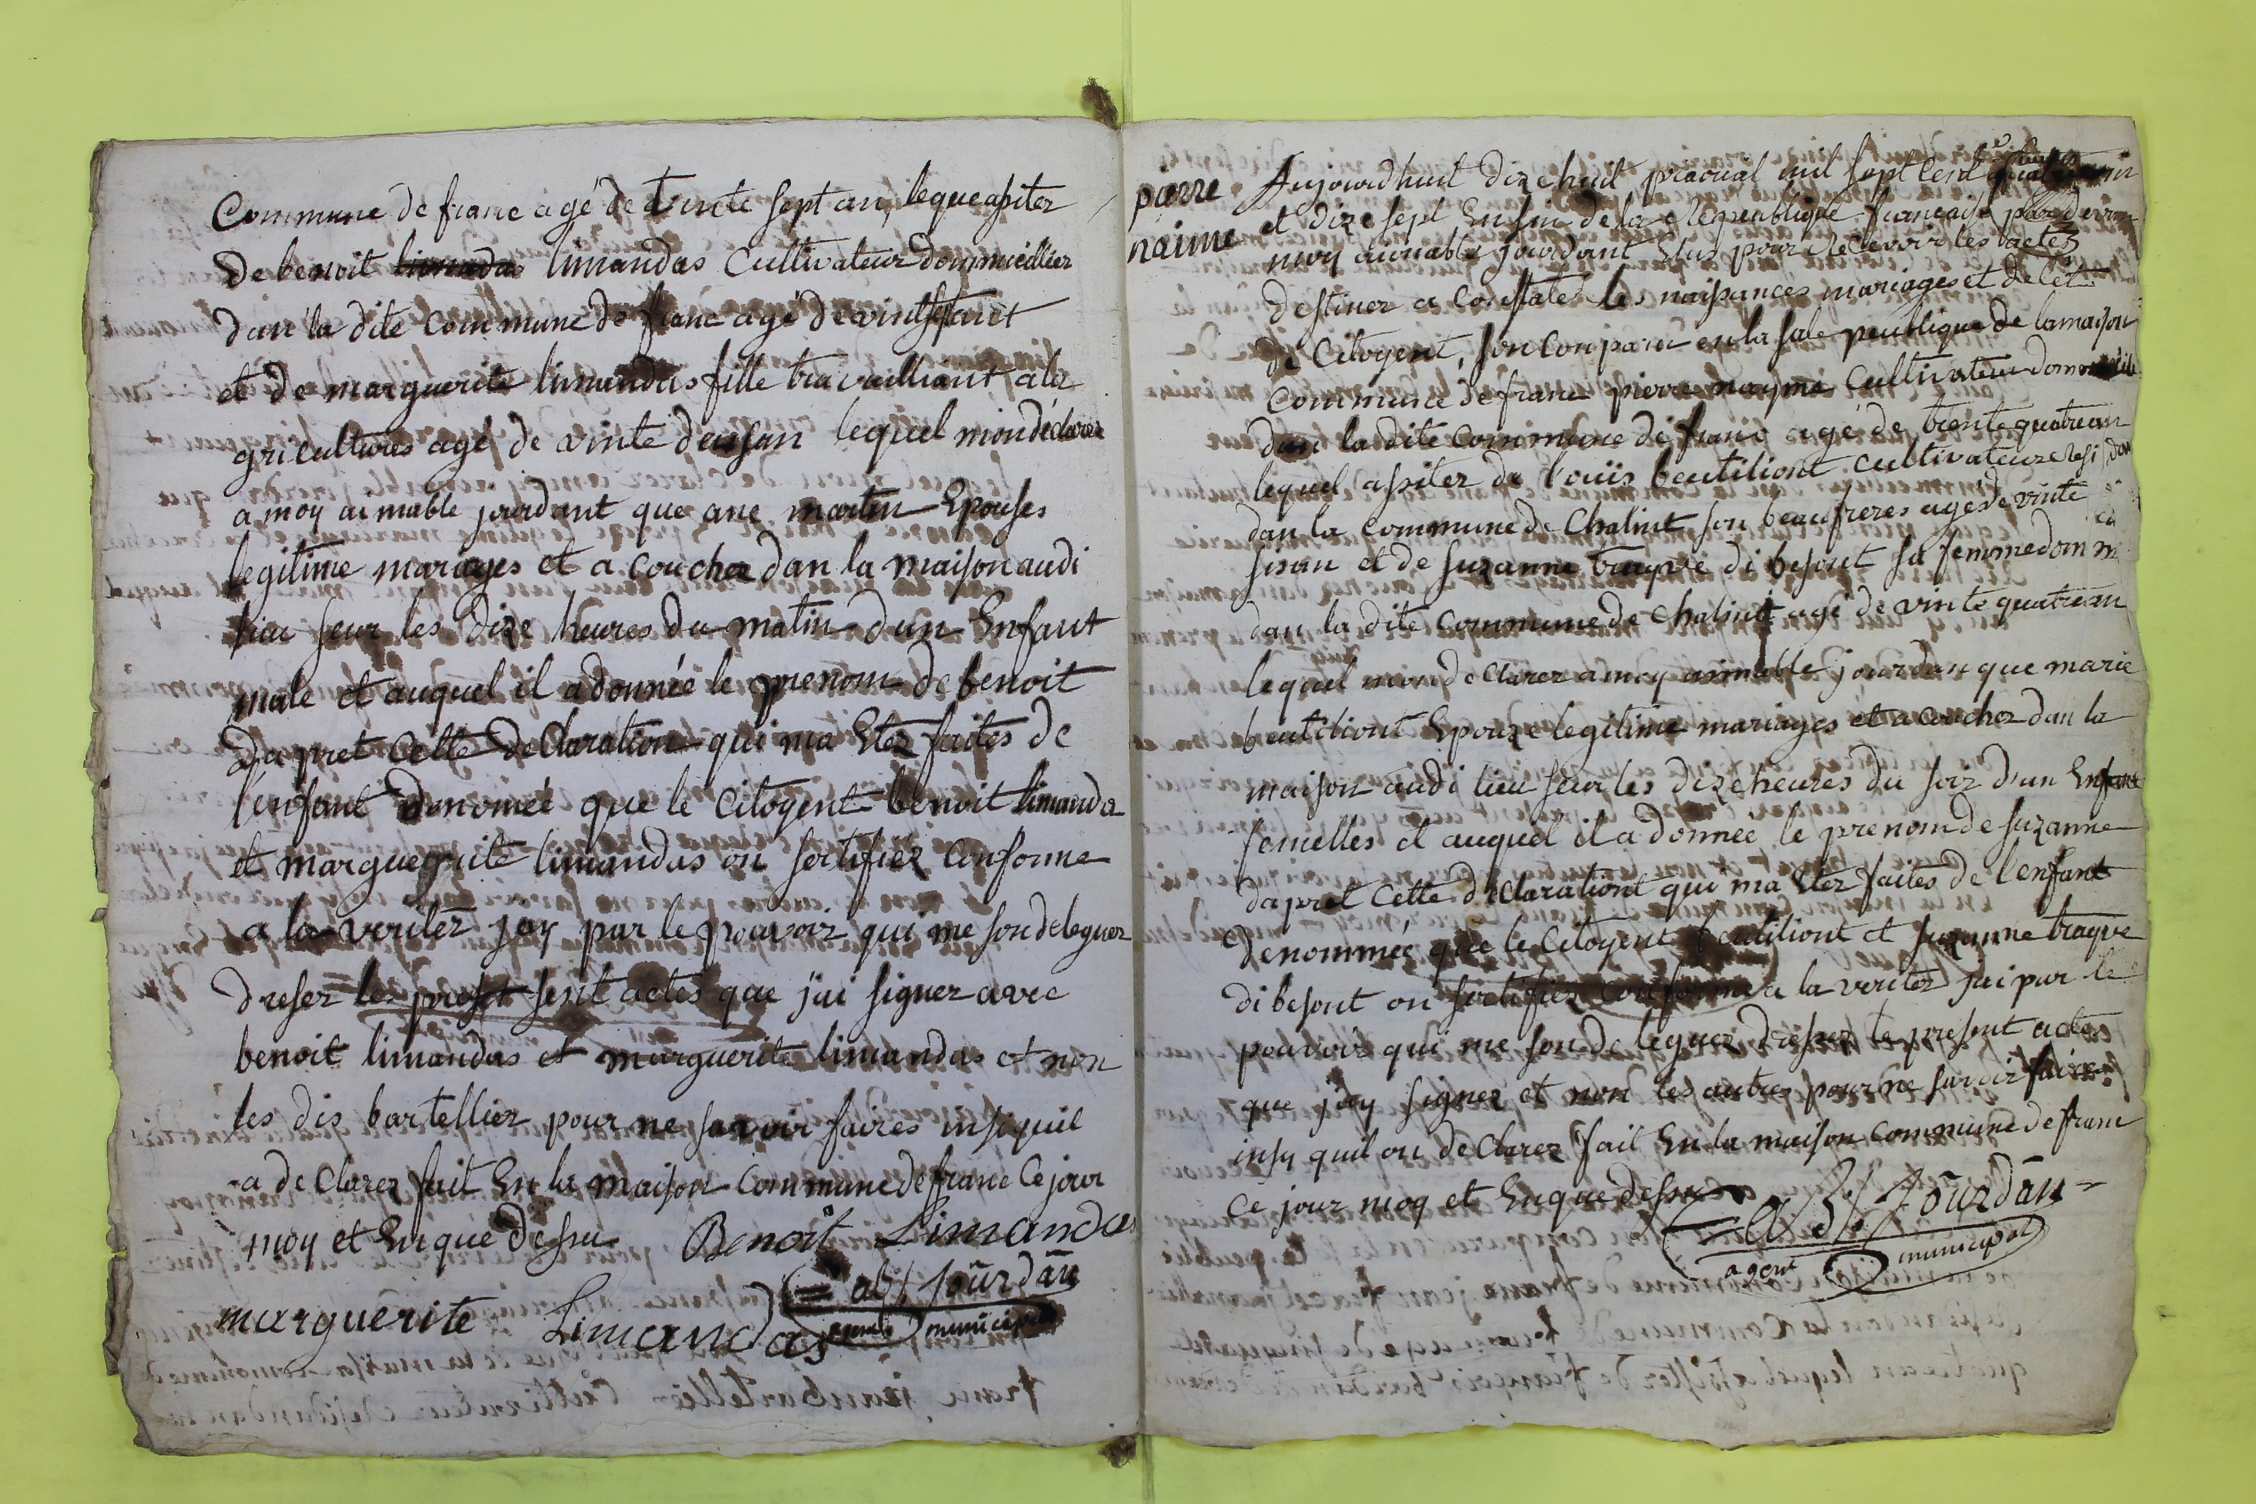 Commune de franc agé de trinte sept an, leque asiter
De benoit limandas limandas Cultivateur dommeillier
dan la dite commune de franc agé de vint
et de marguerite limandas fille travailliant alez
griculturs agé de vinte deusan lequel mon déclarez
a moy aimable jourdant que ane martin Epouses
legitime mariages et a coucher dan la maison audi
lieu seur les dize heures du matin dun Enfant
male et auquel il a donnée le prenom de benoit
Dapret cette declaration qui ma Etez faites de
l'enfant denomeé que le citogent benoit limanda
et marguerite limandas on sertifiez Conforme
a la veritez jay par le pouvoir qui me son deleguer
dreser les preset sent actes que j'ai signer avec
benoit limandas et marguerite limandas et non
les dis bartellier pour ne savoir faires insi quil
a de Clarez fait En la maison Commune de franc Ce jour
moy et Enque desu Benoit Limandas
marguerite Limandas abt Jourdan
municipal
pierre
naime
Aujourdhuit dize huit praorial mil sept Cent
et dize sept Ensin de la Republique francaise pardevan
moy aimable jourdant Elus pour Recevoir les actes
destiner a constater les naisances mariages et decet
de Citogent, son Conparu en la sale peublique de la maison
commune de franc pierre nayme cultivateur
dan la dite commune de franc agé de trente quatre an
lequel asiter de l'ouiis beutitiont cultivateure
dan la commune de Chalint son beaufreres agé de vinte
sisan et de suzanne trayve di besont sa femme dom
dan la dite commune de chalint agé de vinte quatre an
lequel mon de Clarez a moy aimable jourdan que marie
beutitiont Epouze legitime mariages et a coucher dan la
maison audi lieu seur les dize heures du soir d'un Enfant
femelles et auquel il a donnée le prenom de suzanne
dapret Cette declarationt qui ma Etez faites de l'enfant
denommée que le Citogent beutitiont et suzanne trayve
di besont on sertifiez conforme a la veritez jai par le
pouvoir qui me son de leguer dreser le present acte
que j'ay signer et non les autres pour ne savoir faire
insy quil on de Clarez fait En la maison commune de franc
Ce jour moy et Enque desu abt Jourdan
agent municipal